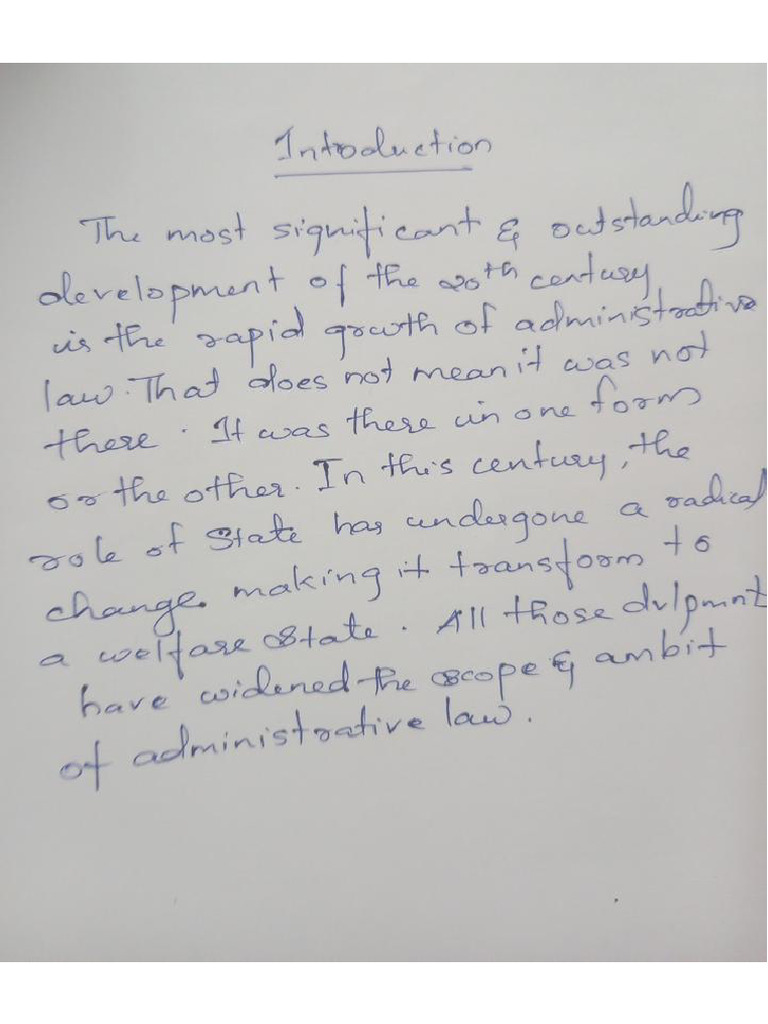 Introduction
The most significant & outstanding
development of the 20th century
is the rapid growth of administrative
law. That does not mean it was not
there. It was there in one form
or the other. In this century, the
role of State has undergone a radical
change. making it transform to
a welfare State. All those dvlpmnt
have widened the scope & ambit
of administrative law.